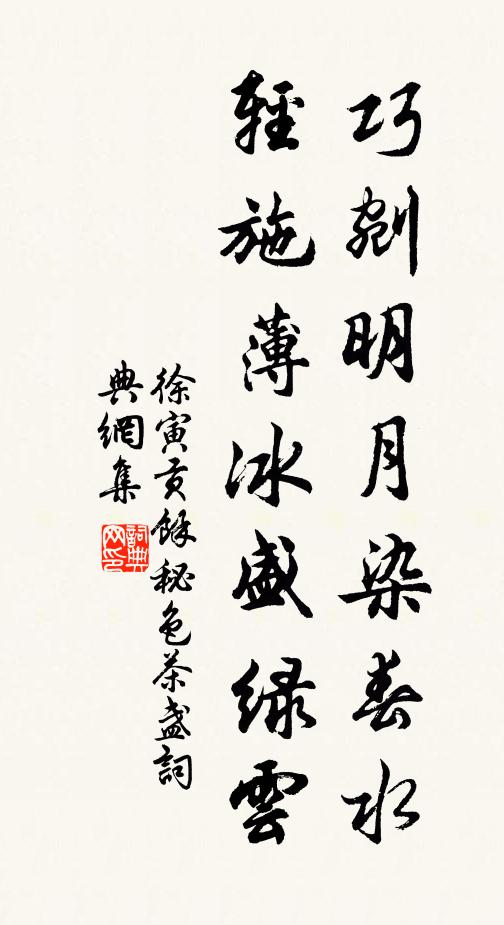 巧剜明月染春水
輕施薄冰盛緑雲
徐寅貢餘秘色茶盞詞
典網集
詞典
网印